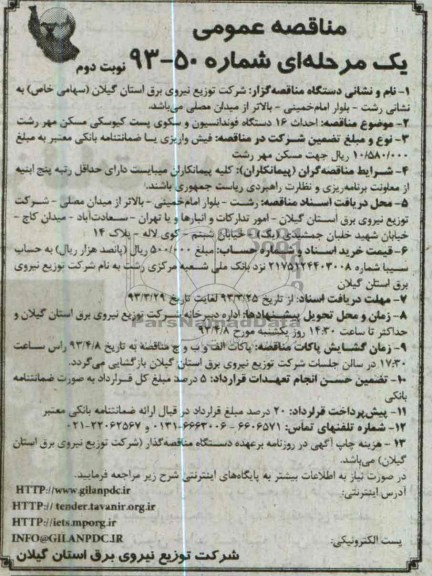 مناقصه عمومی
یک مرحله‌ای شماره ۵۰-۹۳ نوبت دوم
۱- نام و نشانی دستگاه مناقصه‌گزار: شرکت توزیع نیروی برق استان گیلان (سهامی خاص) به
نشانی رشت - بلوار امام‌خمینی - بالاتر از میدان مصلی می‌باشد.
۲- موضوع مناقصه: احداث ۱۶ دستگاه فونداسیون و سکوی پست کیوسکی مسکن مهر رشت
۳- نوع و مبلغ تضمین شرکت در مناقصه: فیش واریزی یا ضمانتنامه بانکی معتبر به مبلغ
۱۰/۵۸۰/۰۰۰ ریال جهت مسکن مهر رشت
۴- شرایط مناقصه‌گران (پیمانکاران): کلیه پیمانکاران میبایست دارای حداقل رتبه پنج ابنیه
از معاونت برنامه‌ریزی و نظارت راهبردی ریاست جمهوری باشند.
۵- محل دریافت اسناد مناقصه: رشت - بلوار امام‌خمینی - بالاتر از میدان مصلی - شرکت
توزیع نیروی برق استان گیلان - امور تدارکات و انبارها و یا تهران - سعادت‌آباد - میدان کاج -
خیابان شهید خلبان جمشیدی (یک) - خیابان شبنم - کوی لاله - پلاک ۱۴
۶- قیمت خرید اسناد و شماره حساب: مبلغ ۵۰۰/۰۰۰ ریال (پانصد هزار ریال) به حساب
سیبا شماره ۲۱۷۵۱۲۴۴۰۳۰۰۸ نزد بانک ملی شعبه مرکزی رشت به نام شرکت توزیع نیروی
برق استان گیلان
۷- مهلت دریافت اسناد: از تاریخ ۹۳/۳/۲۵ لغایت تاریخ ۹۳/۳/۲۹
۸- زمان و محل تحویل پیشنهادها: اداره دبیرخانه شرکت توزیع نیروی برق استان گیلان و
حداکثر تا ساعت ۱۴:۳۰ روز یکشنبه مورخ ۹۳/۴/۸
۹- زمان گشایش پاکات مناقصه: پاکات الف و ب و ج مناقصه به تاریخ ۹۳/۴/۸ راس ساعت
۱۷:۳۰ در سالن جلسات شرکت توزیع نیروی برق استان گیلان بازگشایی می‌گردد.
۱۰- تضمین حسن انجام تعهدات قرارداد: ۵ درصد مبلغ کل قرارداد به صورت ضمانتنامه
بانکی
۱۱- پیش‌پرداخت قرارداد: ۲۰ درصد مبلغ قرارداد در قبال ارائه ضمانتنامه بانکی معتبر
۱۲- شماره تلفنهای تماس: ۶۶۰۶۵۷۱ - ۶۶۶۳۰۰۶-۰۱۳۱ و ۲۲۰۶۲۵۶۷-۰۲۱
۱۳- هزینه چاپ آگهی در روزنامه برعهده دستگاه مناقصه‌گذار (شرکت توزیع نیروی برق استان
گیلان) می‌باشد.
در صورت نیاز به اطلاعات بیشتر به پایگاه‌های اینترنتی شرح زیر مراجعه فرمایید.
آدرس اینترنتی: HTTP://www.gilanpdc.ir
HTTP:// tender.tavanir.org.ir
HTTP://iets.mporg.ir
پست الکترونیکی: INFO@GILANPDC.IR
شرکت توزیع نیروی برق استان گیلان
ParsNamadData